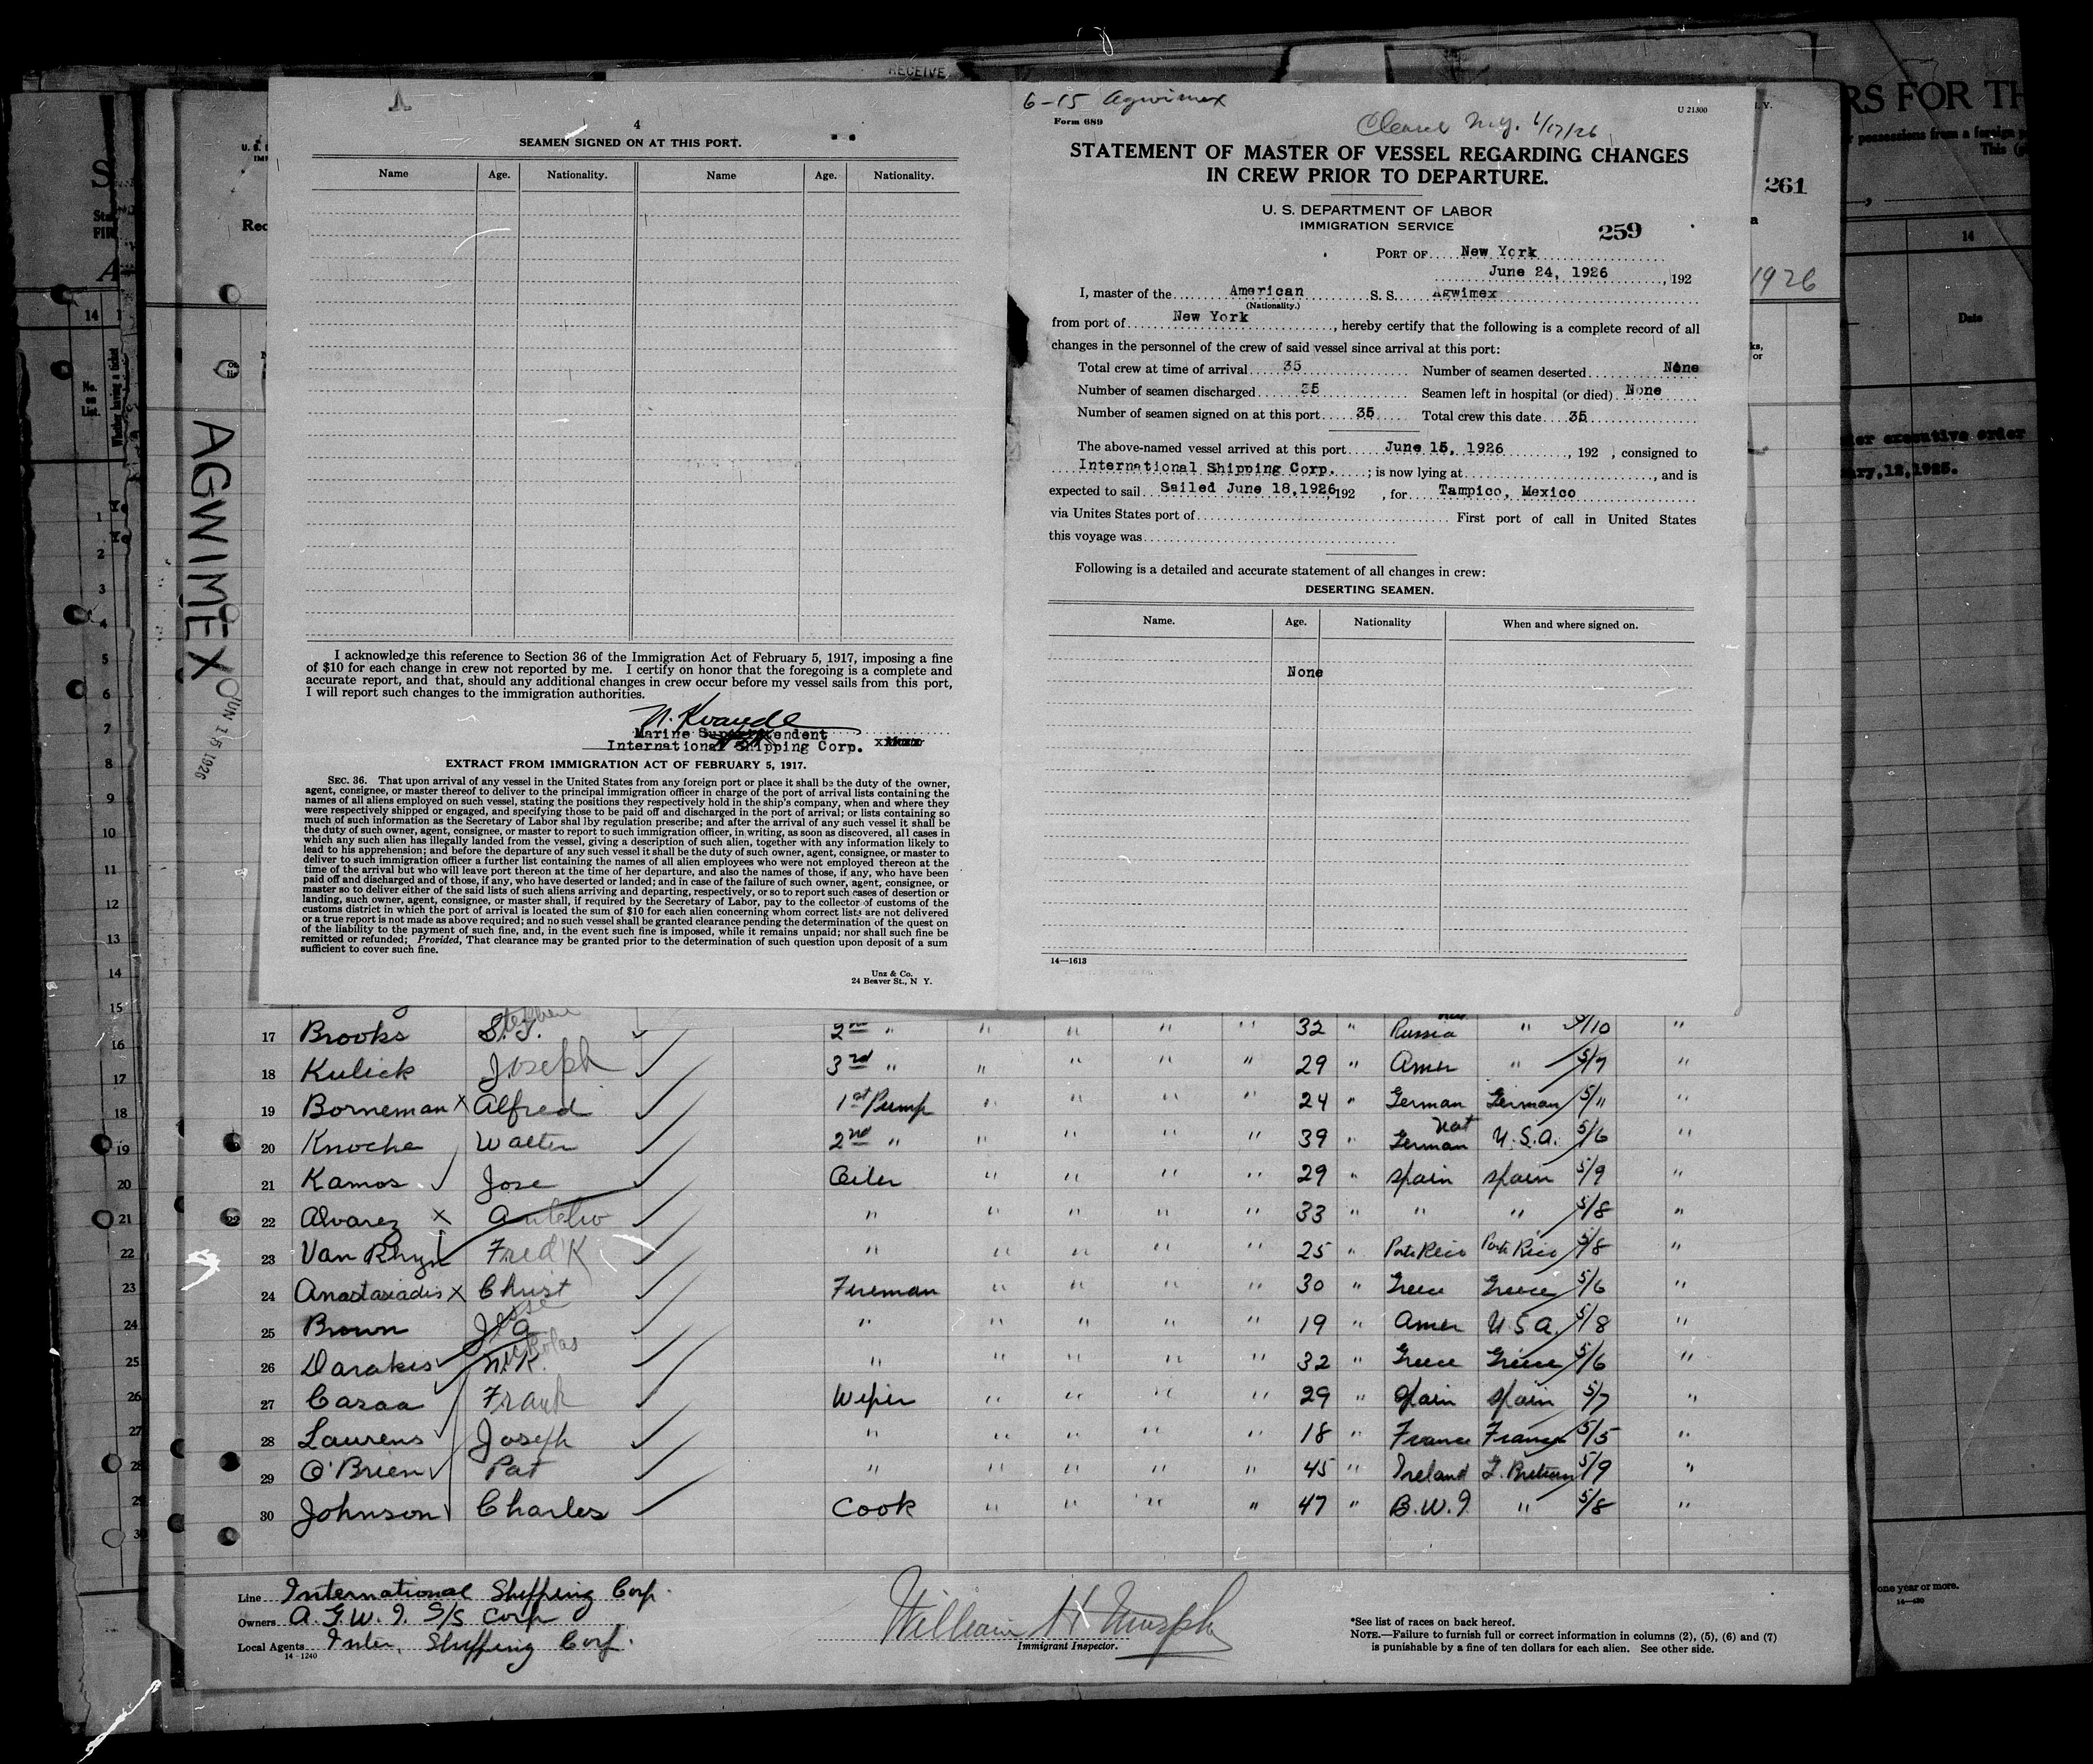 RECEIVE
4
SEAMEN SIGNED ON AT THIS PORT.
Name Age. Nationality. Name Age. Nationality.
I acknowledge this reference to Section 36 of the Immigration Act of February 5, 1917, imposing a fine
of $10 for each change in crew not reported by me. I certify on honor that the foregoing is a complete and
accurate report, and that, should any additional changes in crew occur before my vessel sails from this port,
I will report such changes to the immigration authorities.
N. Kvande
Marine Superintendent
International Shipping Corp.
EXTRACT FROM IMMIGRATION ACT OF FEBRUARY 5, 1917.
SEC. 36. That upon arrival of any vessel in the United States from any foreign port or place it shall be the duty of the owner,
agent, consignee, or master thereof to deliver to the principal immigration officer in charge of the port of arrival lists containing the
names of all aliens employed on such vessel, stating the positions they respectively hold in the ship's company, when and where they
were respectively shipped or engaged, and specifying those to be paid off and discharged in the port of arrival; or lists containing so
much of such information as the Secretary of Labor shal lby regulation prescribe; and after the arrival of any such vessel it shall be
the duty of such owner, agent, consignee, or master to report to such immigration officer, in writing, as soon as discovered, all cases in
which any such alien has illegally landed from the vessel, giving a description of such alien, together with any information likely to
lead to his apprehension; and before the departure of any such vessel it shall be the duty of such owner, agent, consignee, or master to
deliver to such immigration officer a further list containing the names of all alien employees who were not employed thereon at the
time of the arrival but who will leave port thereon at the time of her departure, and also the names of those, if any, who have been
paid off and discharged and of those, if any, who have deserted or landed; and in case of the failure of such owner, agent, consignee, or
master so to deliver either of the said lists of such aliens arriving and departing, respectively, or so to report such cases of desertion or
landing, such owner, agent, consignee, or master shall, if required by the Secretary of Labor, pay to the collector of customs of the
customs district in which the port of arrival is located the sum of $10 for each alien concerning whom correct lists are not delivered
or a true report is not made as above required; and no such vessel shall be granted clearance pending the determination of the quest on
of the liability to the payment of such fine, and, in the event such fine is imposed, while it remains unpaid; nor shall such fine be
remitted or refunded; Provided, That clearance may be granted prior to the determination of such question upon deposit of a sum
sufficient to cover such fine.
Unz & Co.
24 Beaver St., N Y.
6-15 Agwimex
Form 689
U 21300
Cleared N.Y. 6/17/26
STATEMENT OF MASTER OF VESSEL REGARDING CHANGES
IN CREW PRIOR TO DEPARTURE.
U. S. DEPARTMENT OF LABOR
IMMIGRATION SERVICE
259
PORT OF New York
June 24, 1926, 192
I, master of the American S. S. Agwimex
(Nationality.)
from port of New York, hereby certify that the following is a complete record of all
changes in the personnel of the crew of said vessel since arrival at this port:
Total crew at time of arrival 35 Number of seamen deserted None
Number of seamen discharged 35 Seamen left in hospital (or died) None
Number of seamen signed on at this port 35 Total crew this date 35
The above-named vessel arrived at this port June 15, 1926, 192 , consigned to
International Shipping Corp. ; is now lying at , and is
expected to sail Sailed June 18,1926, 192 , for Tampico, Mexico
via Unites States port of First port of call in United States
this voyage was
Following is a detailed and accurate statement of all changes in crew:
DESERTING SEAMEN.
Name. Age. Nationality When and where signed on.
None
14—1613
RS FOR TH
possessions from a foreign
This
261
14
1926
Date
executive order
ary,12,1925.
one year or more.
AGWIMEX
JUN 15 1926
No. List.
Whether having a ticket
14
1
2
3
4
5
6
7
8
9
10
11
12
13
14
15
16
17
18
19
20
21
22
23
24
25
26
27
28
29
30
17 Brooks S.J. Stephen 2nd " " " " " 32 " Russia " 5/10 "
18 Kulick Joseph 3rd " " " " " 29 " Amer " 5/7 "
19 Borneman x Alfred 1st Pump " " " " 24 " German German 5/11 "
20 Knoche Walter 2nd " " " " " 39 " German Nat U.S.A. 5/6 "
21 Kamos Jose Oiler " " " " 29 " Spain Spain 5/9 "
22 Alvarez x " " " " " 33 " " " 5/8 "
23 Van Rhyn Fred'K " " " " " 25 " Porto Rico Porto Rico 5/8 "
24 Anastasiadis x Christ Fireman " " " " 30 " Greece Greece 5/6 "
25 Brown J.A. Jesse " " " " " 19 " Amer U.S.A. 5/8 "
26 Darakis N.K. Nicholas " " " " " 32 " Greece Greece 5/6 "
27 Casaa Frank Wiper " " " " 29 " Spain Spain 5/7 "
28 Laurens Joseph " " " " " 18 " France France 5/5 "
29 O'Brien Pat " " " " " 45 " Ireland G. Britain 5/9 "
30 Johnson Charles Cook " " " " 47 " B.W.I. " 5/8 "
Line International Shipping Corp.
Owners A.G.W.I. S/S Corp
Local Agents Inter. Shipping Corp.
14-1240
William H Murphy
Immigrant Inspector.
*See list of races on back hereof.
NOTE.—Failure to furnish full or correct information in columns (2), (5), (6) and (7)
is punishable by a fine of ten dollars for each alien. See other side.